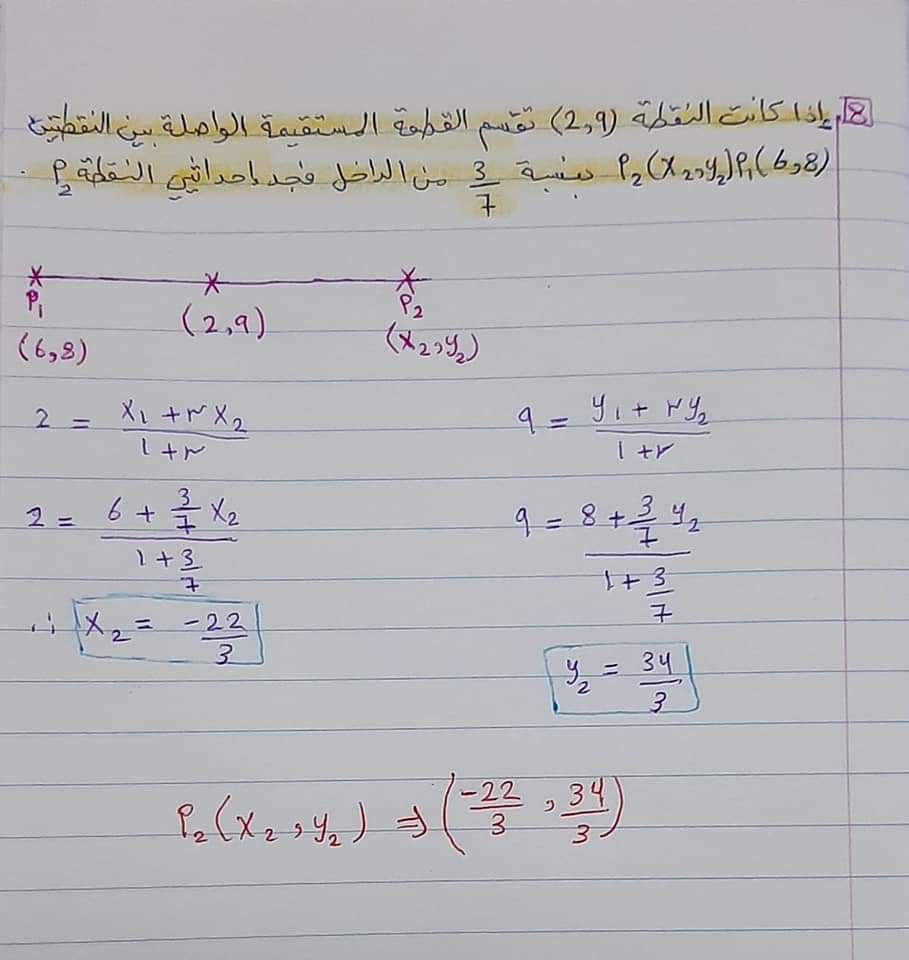 8. إذا كانت النقطة (2,9) تقسم القطعة المستقيمة الواصلة بين النقطتين
P₁(6,8) P₂(x₂,y₂) بنسبة 3/7 من الداخل فجد إحداثيي النقطة P₂ .
P₁ (2,9) P₂
(6,8) (x₂,y₂)
2 = (x₁ + r x₂)/(1 + r) 9 = (y₁ + r y₂)/(1 + r)
2 = (6 + 3/7 x₂)/(1 + 3/7) 9 = (8 + 3/7 y₂)/(1 + 3/7)
∴ x₂ = -22/3
y₂ = 34/3
P₂(x₂,y₂) ⇒ (-22/3 , 34/3)